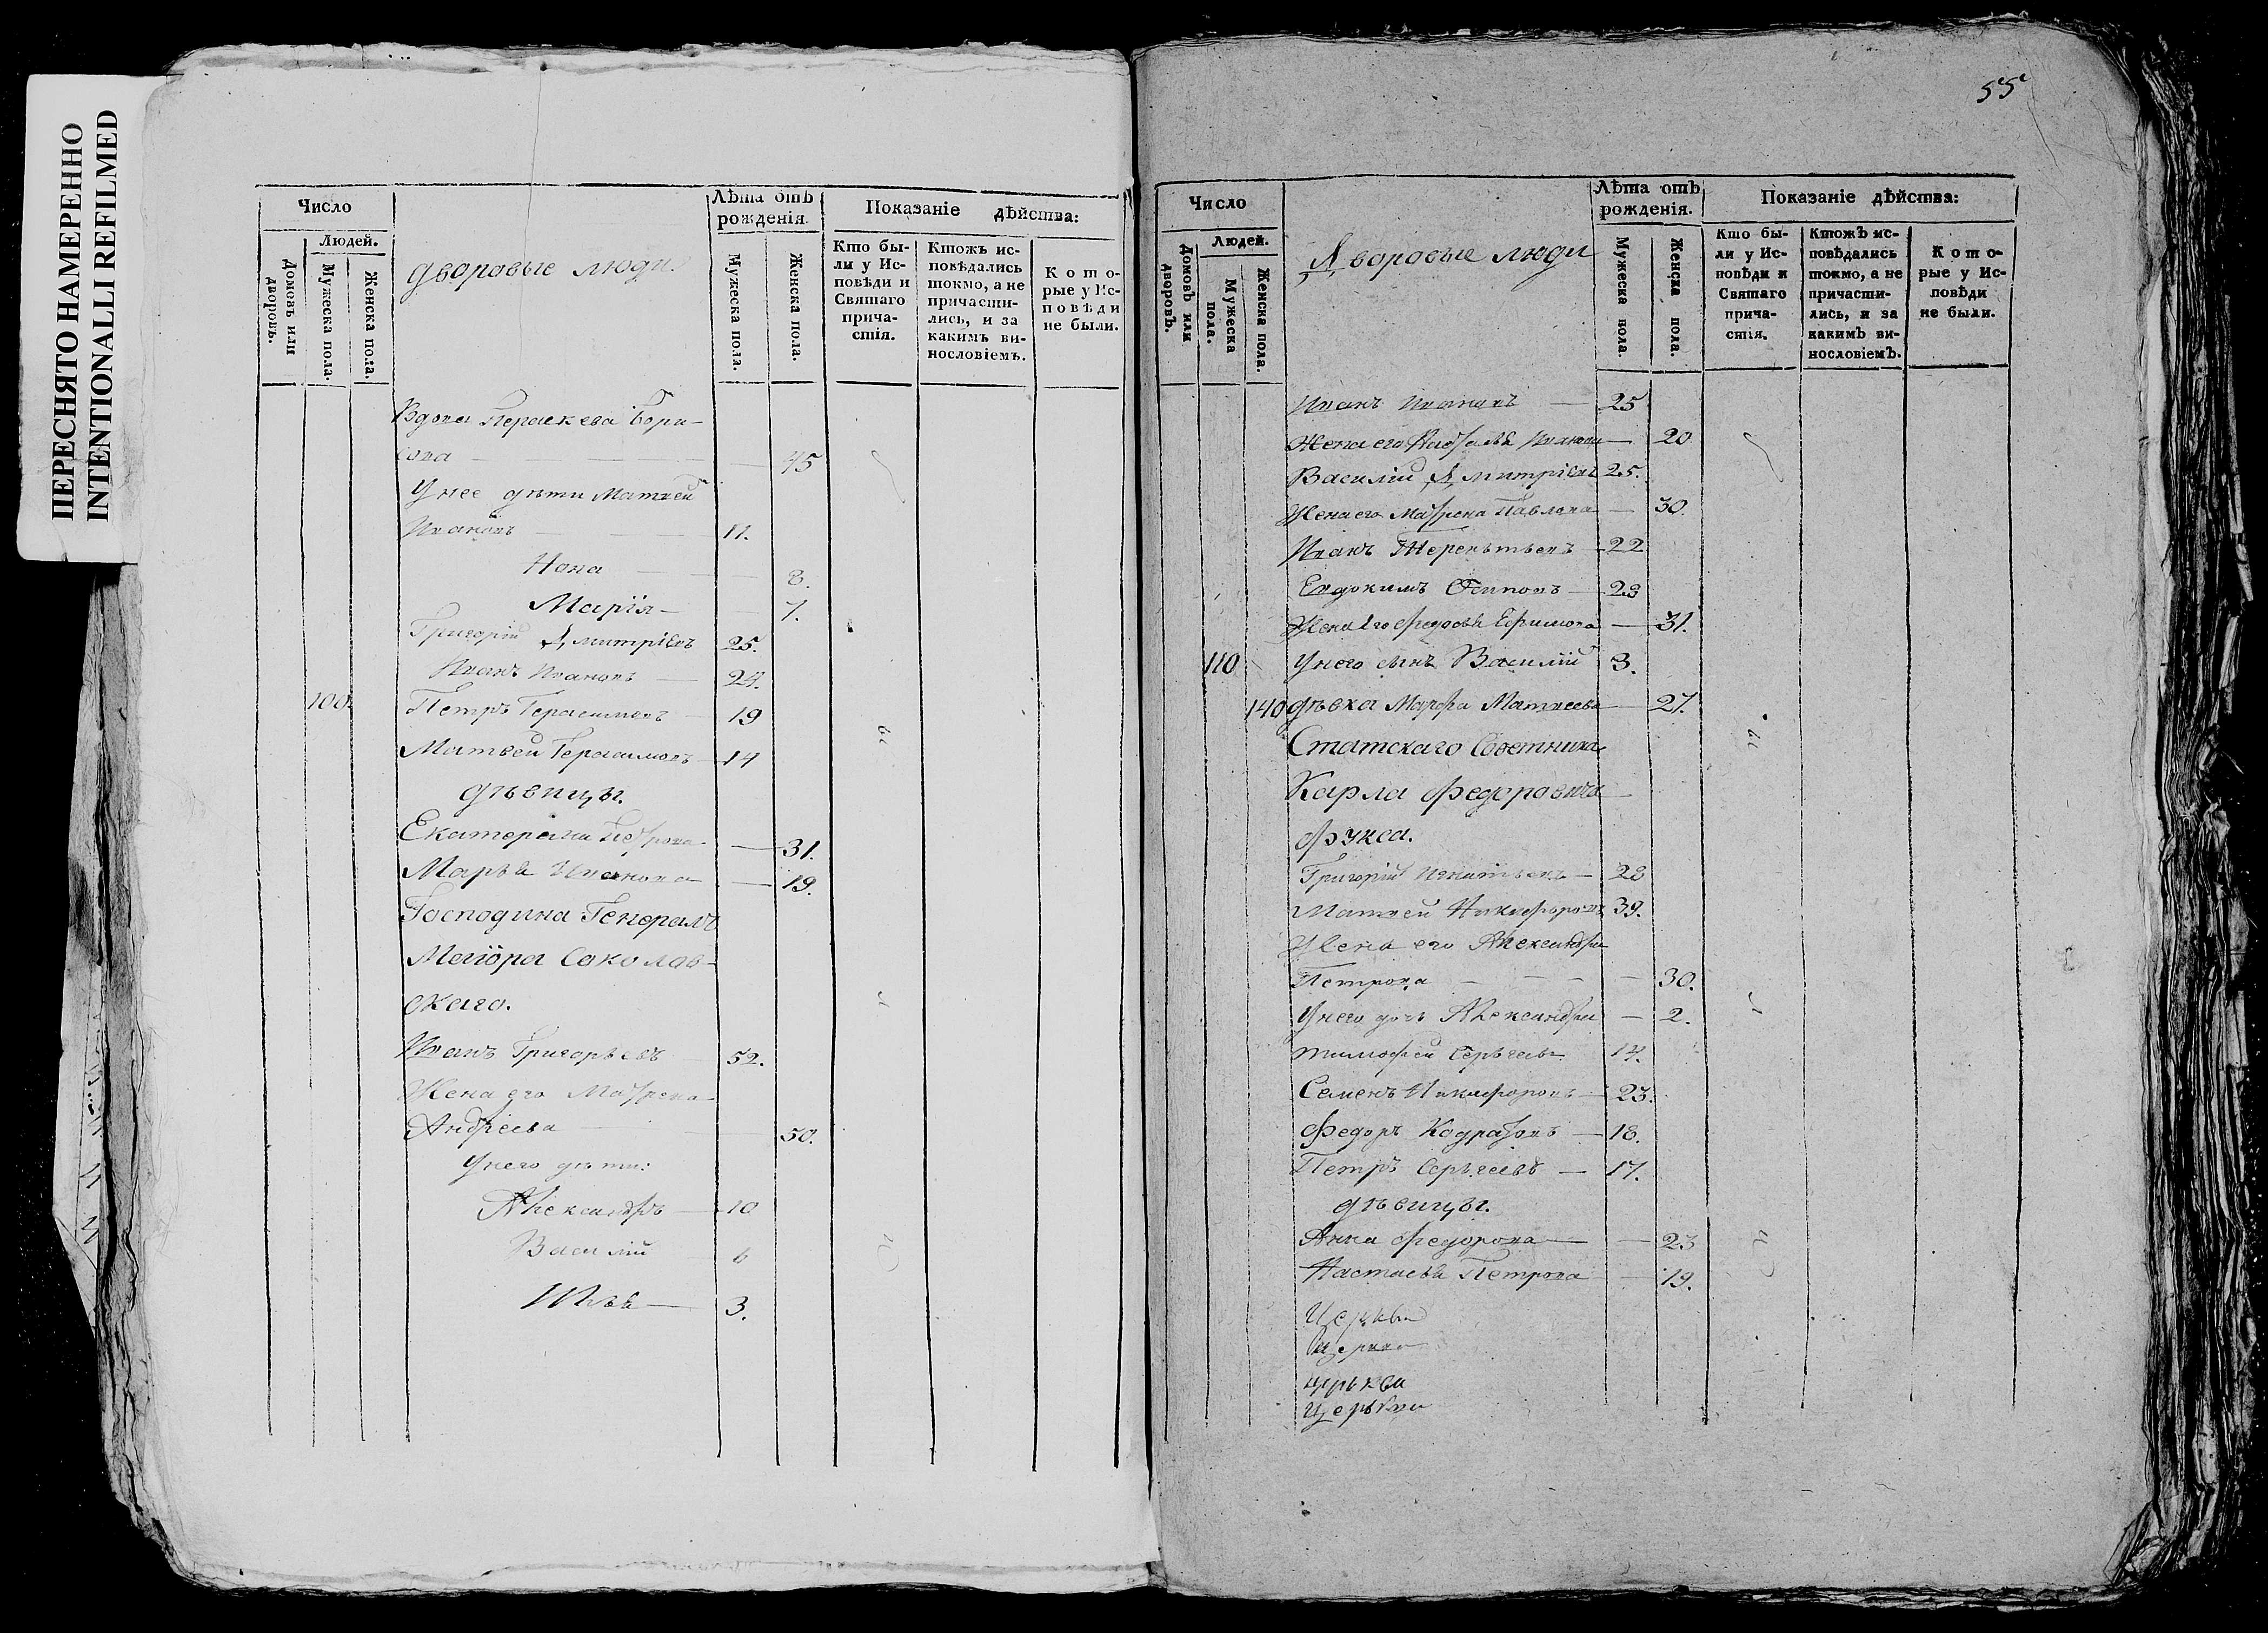 ПЕРЕСНЯТО НАМЕРЕННО
INTENTIONALLI REFILMED
Число
Людей.
Домовъ или дворовъ.
Мужеска пола.
Женска пола.
дворовые люди
Лѣта отъ рожденія.
Мужеска пола.
Женска пола.
Показаніе дѣйства:
Кто были у Исповѣди и Святаго причастія.
Ктожъ исповѣдались токмо, а не причастились, и за какимъ винословіемъ.
Которые у Исповѣди не были.
Вдова Параскева Бори-
сова — 45
У нее дѣти Матвей
Ивановъ — 11.
Нона — 8.
Марія — 7.
Григорій Дмитріевъ 25.
Иванъ Ивановъ — 24.
100. Петръ Герасимовъ — 19
Матвей Герасимовъ — 14
дѣвицы.
Екатерина Петрова — 31.
Марья Иванова — 19.
Господина Генералъ
Маіора Соколов-
скаго.
Иванъ Григорьевъ 52.
Жена его Мавра
Андреева — 50.
У него дѣти:
Александръ — 10
Василій 6
Илья — 3.
55
Число
Людей.
Домовъ или дворовъ.
Мужеска пола.
Женска пола.
Дворовые люди
Лѣта отъ рожденія.
Мужеска пола.
Женска пола.
Показаніе дѣйства:
Кто были у Исповѣди и Святаго причастія.
Ктожъ исповѣдались токмо, а не причастились, и за какимъ винословіемъ.
Которые у Исповѣди не были.
Иванъ Ивановъ — 25
Жена его Иванова — 20
Василій Дмитріевъ 25.
Жена его Матрена Павлова — 30.
Иванъ Терентьевъ — 22
Евдокимъ Осиповъ — 23
Жена его Федосья Ефимова — 31.
110 У него сынъ Василій 3.
140 дѣвка Марфа Матвеева — 27.
Статскаго Советника
Карла Федоровича
Фукса.
Григорій Игнатьевъ — 23
Матвей Никифоровъ 39.
Жена его Александра
Петрова — 30.
У него дочь Александра — 2.
Тимофей Сергеевъ 14.
Семенъ Никифоровъ — 23.
Федоръ Кодратовъ — 18.
Петръ Сергеевъ — 17.
дѣвицы.
Анна Федорова — 23
Настасья Петрова — 19.
Церькви
церкви
Церькви